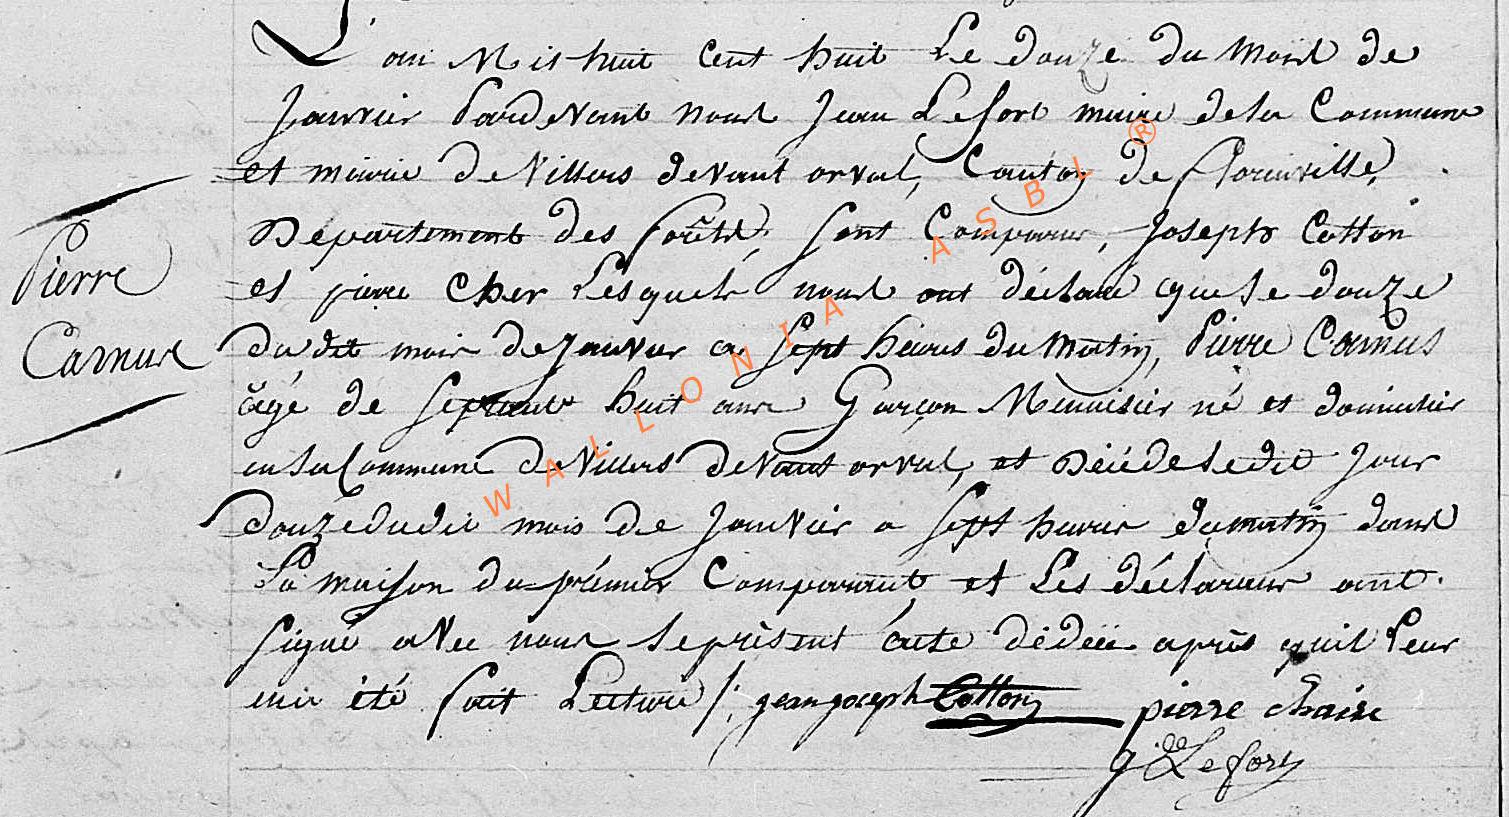 Pierre
Camus
L'an Mil huit cent huit Le douze du mois de
Janvier Pardevant nous Jean Lefort maire de la Commune
et mairie de Villers devant orval, Canton de florenville,
Département des forêts, sont Comparus, Joseph Cotton
et pierre Cher Lesquels nous ont déclaré que le douze
du dit mois de Janvier a sept heures du matin, Pierre Camus
âgé de septante huit ans Garçon Menuisier né et domicilier
en la Commune de Villers devant orval, et décédé le dit Jour
douze du dit mois de Janvier a sept heures du matin dans
La maison du prémier Comparant et Les déclarans ont
signé avec nous le présent acte dédéce après quil Leur
en a été fait Lecture /. jean joseph Cotton pierre chaire
J. Lefort
WALLONIA ASBL ®